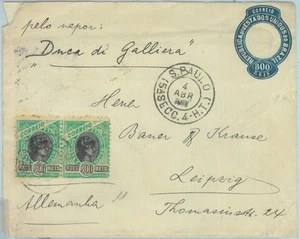 pelo vapor:
„Duca di Galliera"
CORREIO
REPUBLICA DOS ESTADOS UNIDOS DO BRAZIL
300
REIS
S. PAULO
4
ABR
(5ª SECC. 4-H.T.)
Herrn
Baner & Krause
Leipzig
Thomasiusstr. 24
Allemanha"
REIS REIS